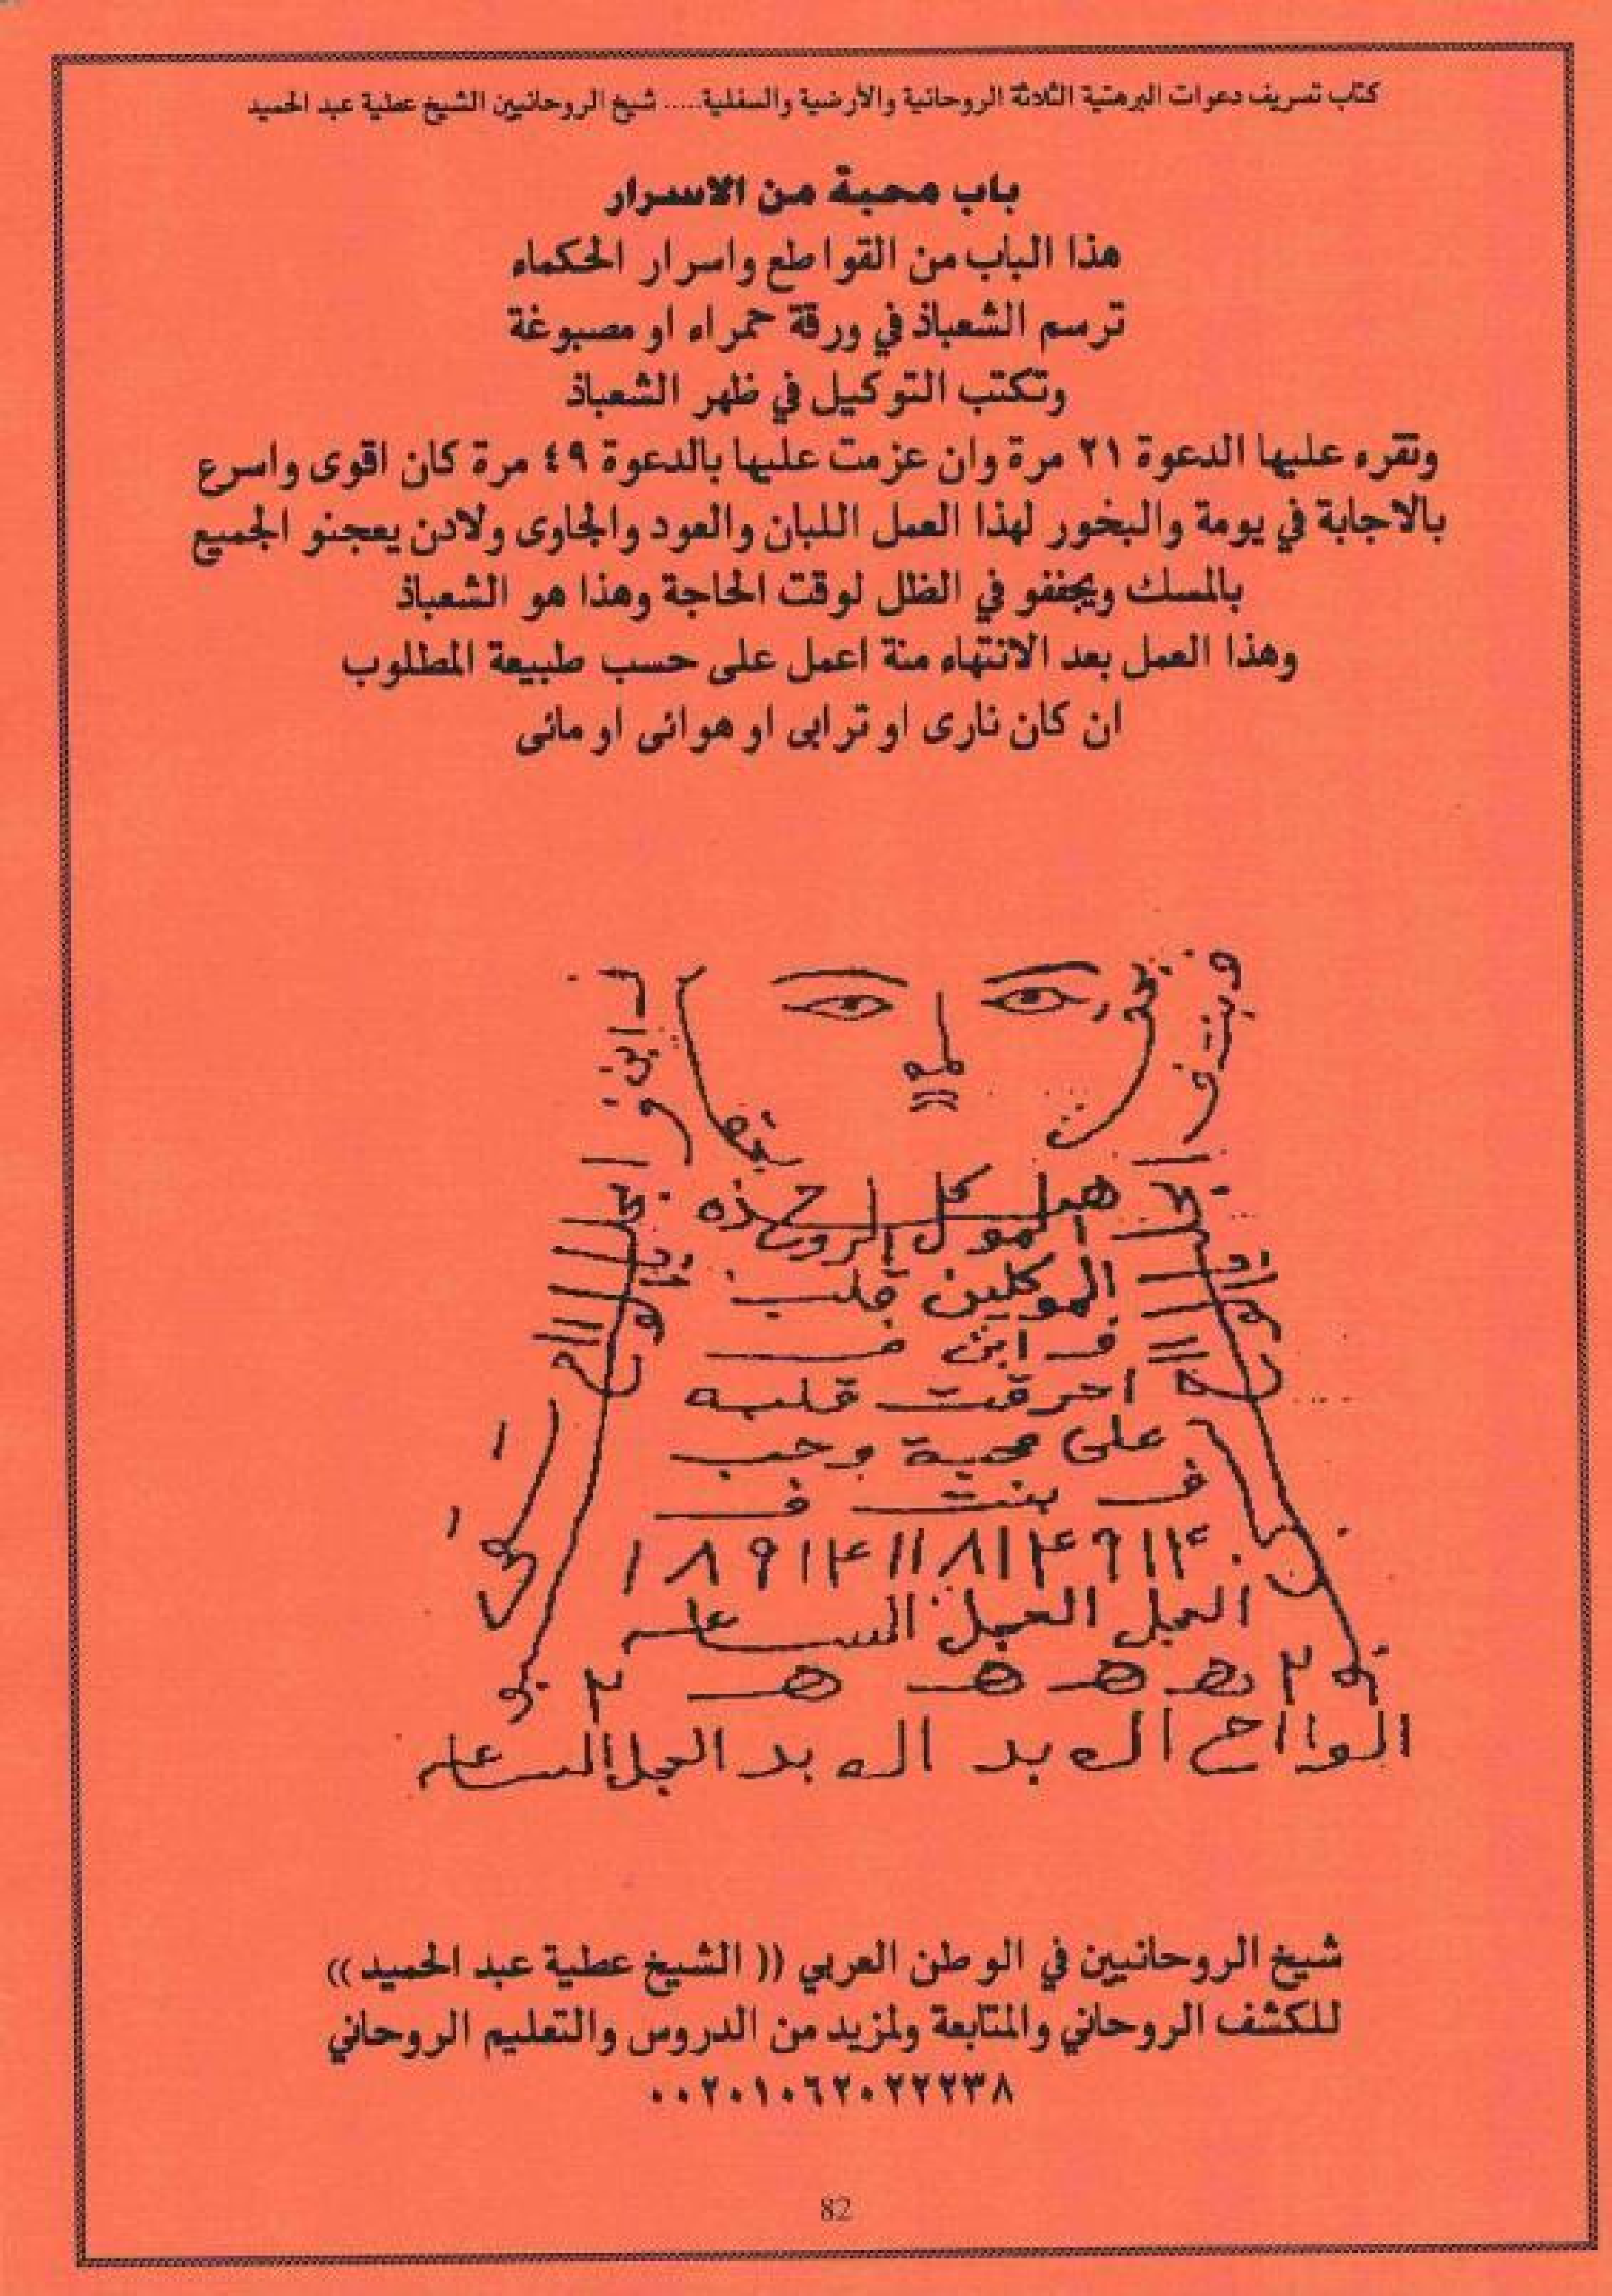 كتاب تسريف دعوات البرهتية الثلاثة الروحانية والأرضية والسفلية..... شيخ الروحانيين الشيخ عطية عبد الحميد
باب محبة من الاسرار
هذا الباب من القواطع واسرار الحكماء
ترسم الشعباذ في ورقة حمراء او مصبوغة
وتكتب التوكيل في ظهر الشعباذ
وتقره عليها الدعوة ٢١ مرة وان عزمت عليها بالدعوة ٤٩ مرة كان اقوى واسرع
بالاجابة في يومة والبخور لهذا العمل اللبان والعود والجاوى ولادن يعجنو الجميع
بالمسك ويجففو في الظل لوقت الحاجة وهذا هو الشعباذ
وهذا العمل بعد الانتهاء منة اعمل على حسب طبيعة المطلوب
ان كان نارى او ترابى او هوائى او مائى
الموكل الروح
الموكلين قلب
ف ابن ف
احرقت قلبه
على محبة وحب
ف بنت ف
العجل العجل الساعه
ه ه ه ه
الوااح اله بد اله بد العجل الساعه
شيخ الروحانيين في الوطن العربي (( الشيخ عطية عبد الحميد ))
للكشف الروحاني والمتابعة ولمزيد من الدروس والتعليم الروحاني
٠٠٢٠١٠٦٢٠٢٢٢٣٨
82